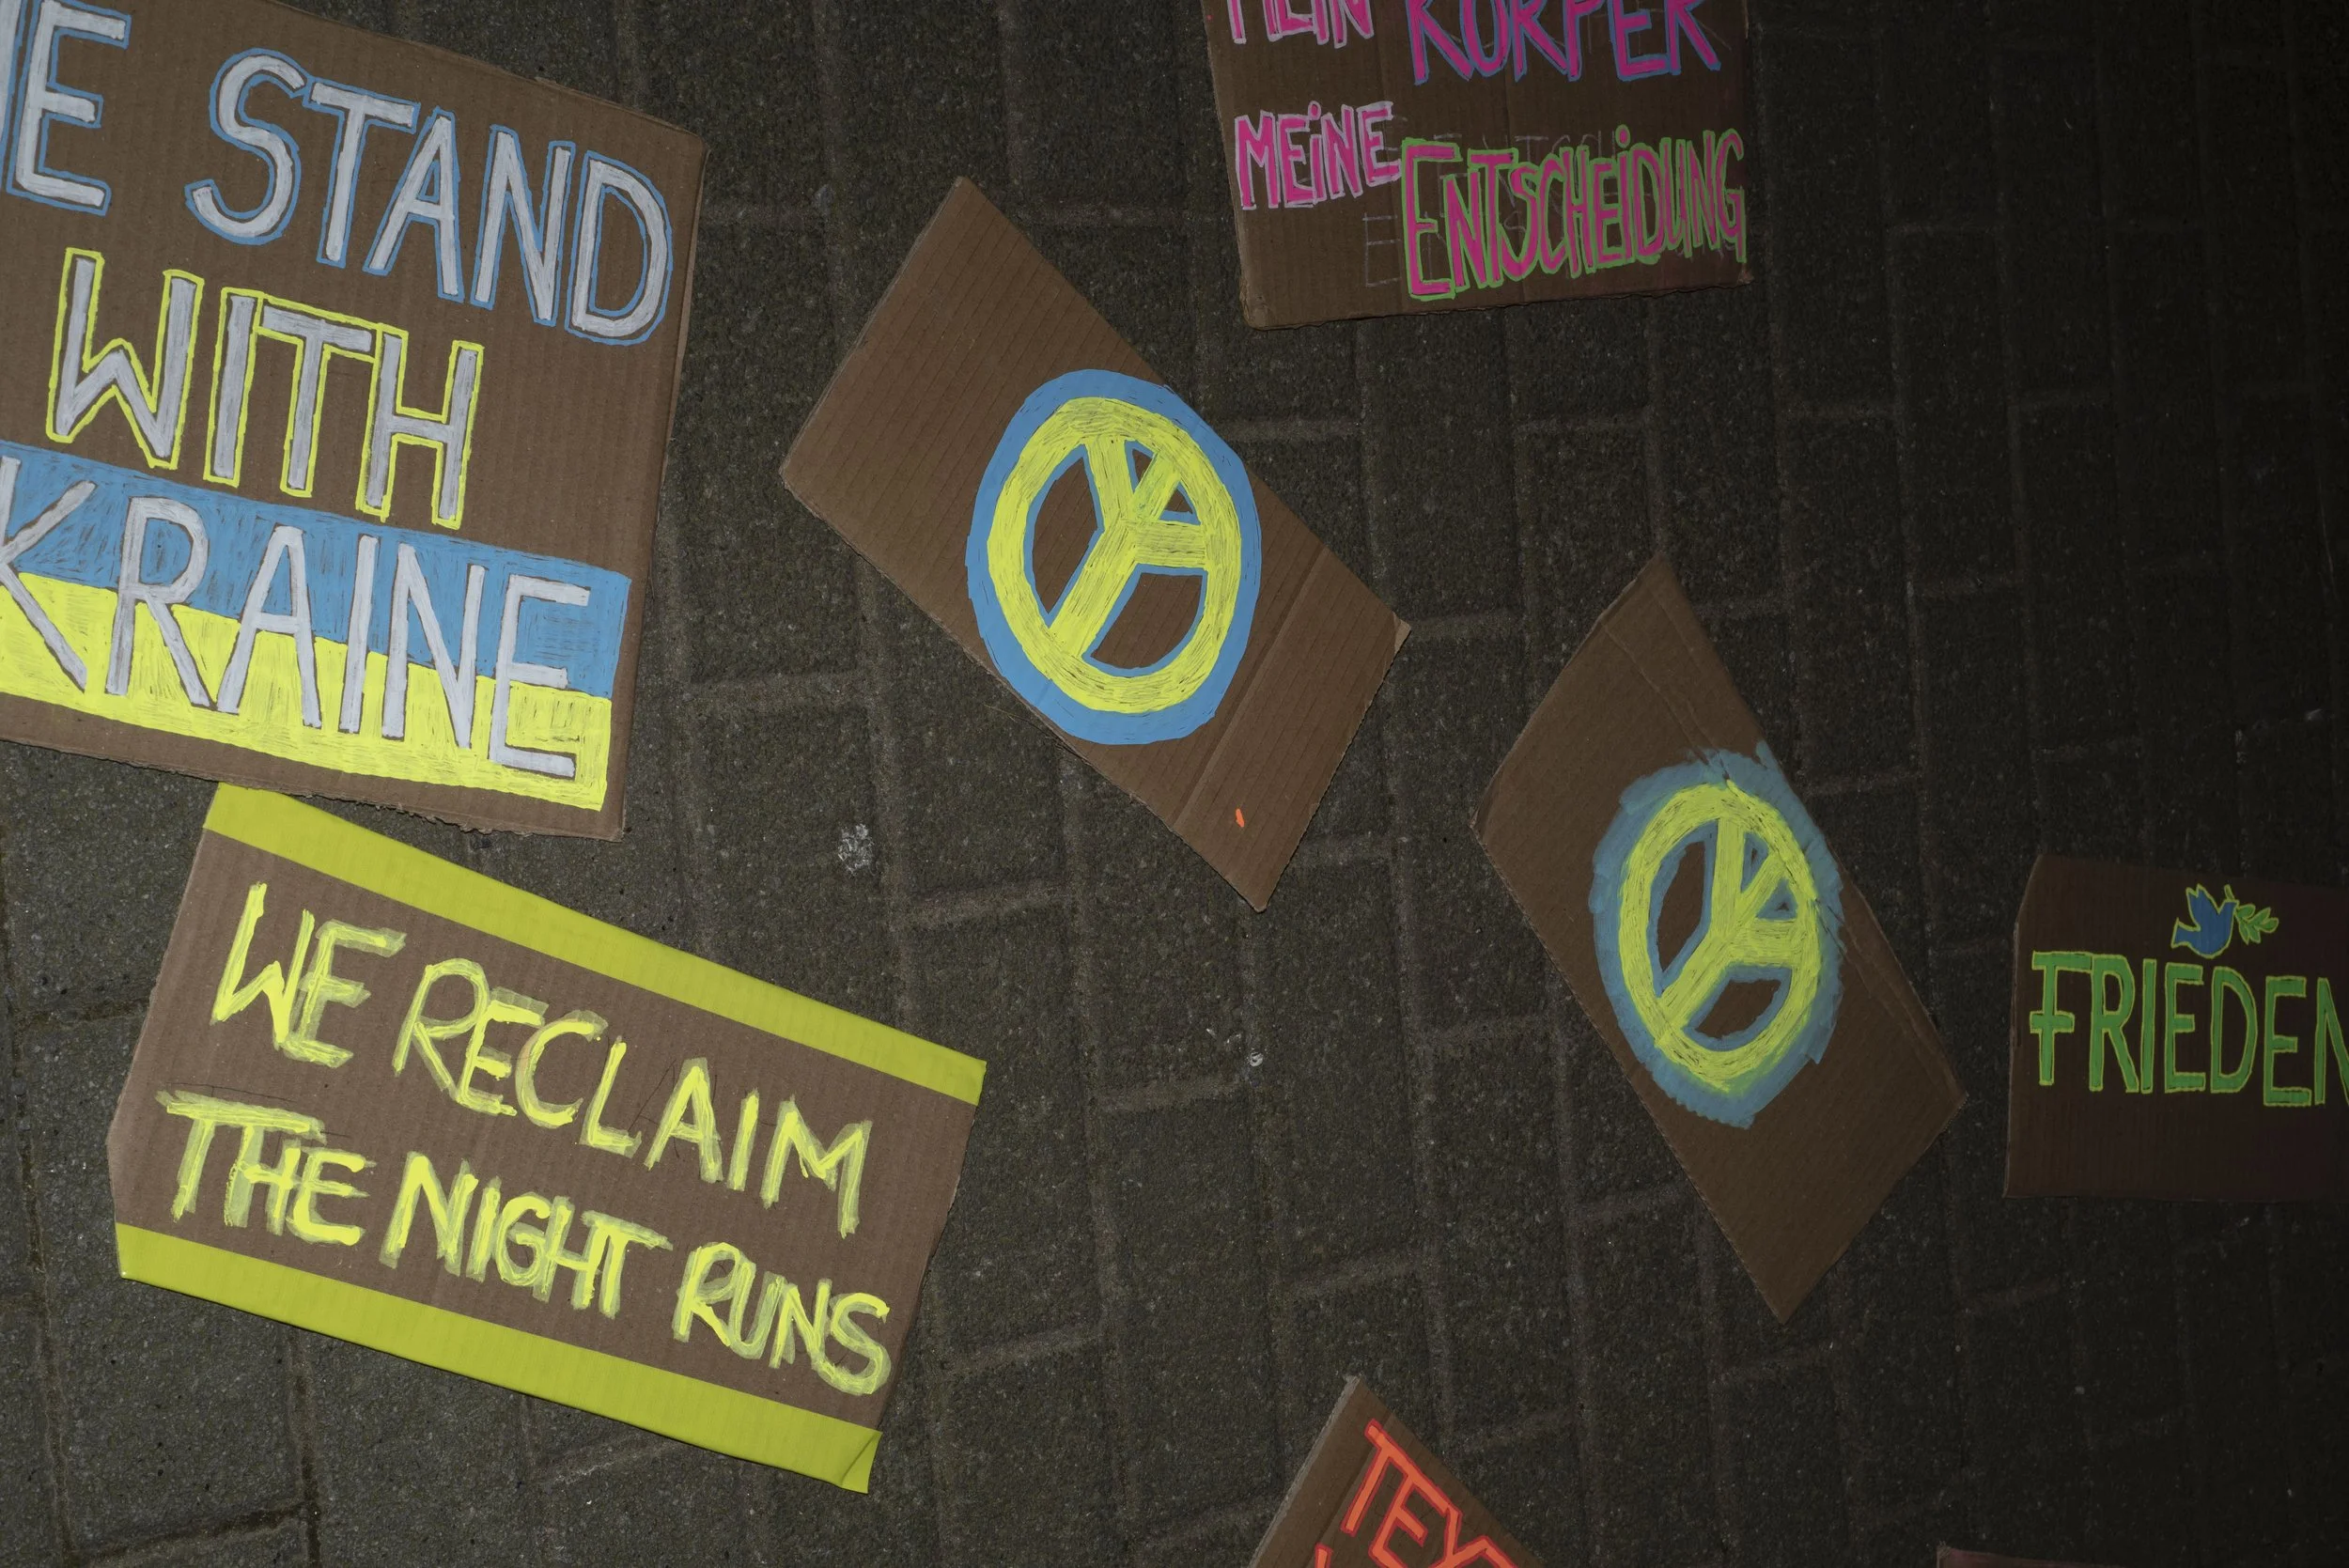 E STAND
WITH
KRAINE
MEIN KÖRPER
MEINE ENTSCHEIDUNG
WE RECLAIM
THE NIGHT RUNS
FRIEDEN
TEX